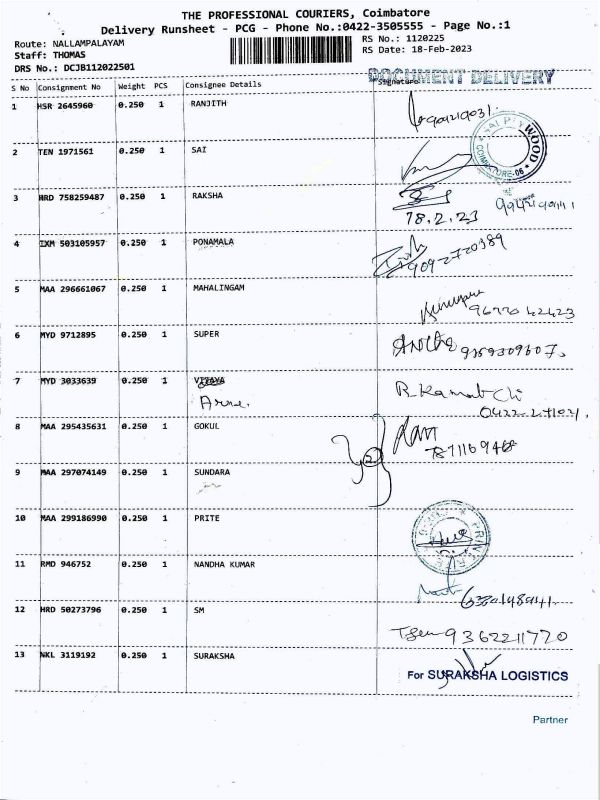 THE PROFESSIONAL COURIERS, Coimbatore
Delivery Runsheet - PCG - Phone No.:0422-3505555 - Page No.:1
Route: NALLAMPALAYAM RS No.: 1120225
Staff: THOMAS RS Date: 18-Feb-2023
DRS No.: DCJB112022501
DOCUMENT DELIVERY
S No Consignment No Weight PCS Consignee Details Signature
1 HSR 2645960 0.250 1 RANJITH
2 TEN 1971561 0.250 1 SAI
PLYWOOD
COIMBATORE-06
3 HRD 758259487 0.250 1 RAKSHA
18.2.23
4 IXM 503105957 0.250 1 PONAMALA
9092720389
5 MAA 296661067 0.250 1 MAHALINGAM
6 MYD 9712895 0.250 1 SUPER
7 MYD 3033639 0.250 1 VIJAYA
8 MAA 295435631 0.250 1 GOKUL
9 MAA 297074149 0.250 1 SUNDARA
10 MAA 299186990 0.250 1 PRITE
11 RMD 946752 0.250 1 NANDHA KUMAR
12 HRD 50273796 0.250 1 SM
9362211770
13 NKL 3119192 0.250 1 SURAKSHA
For SURAKSHA LOGISTICS
Partner